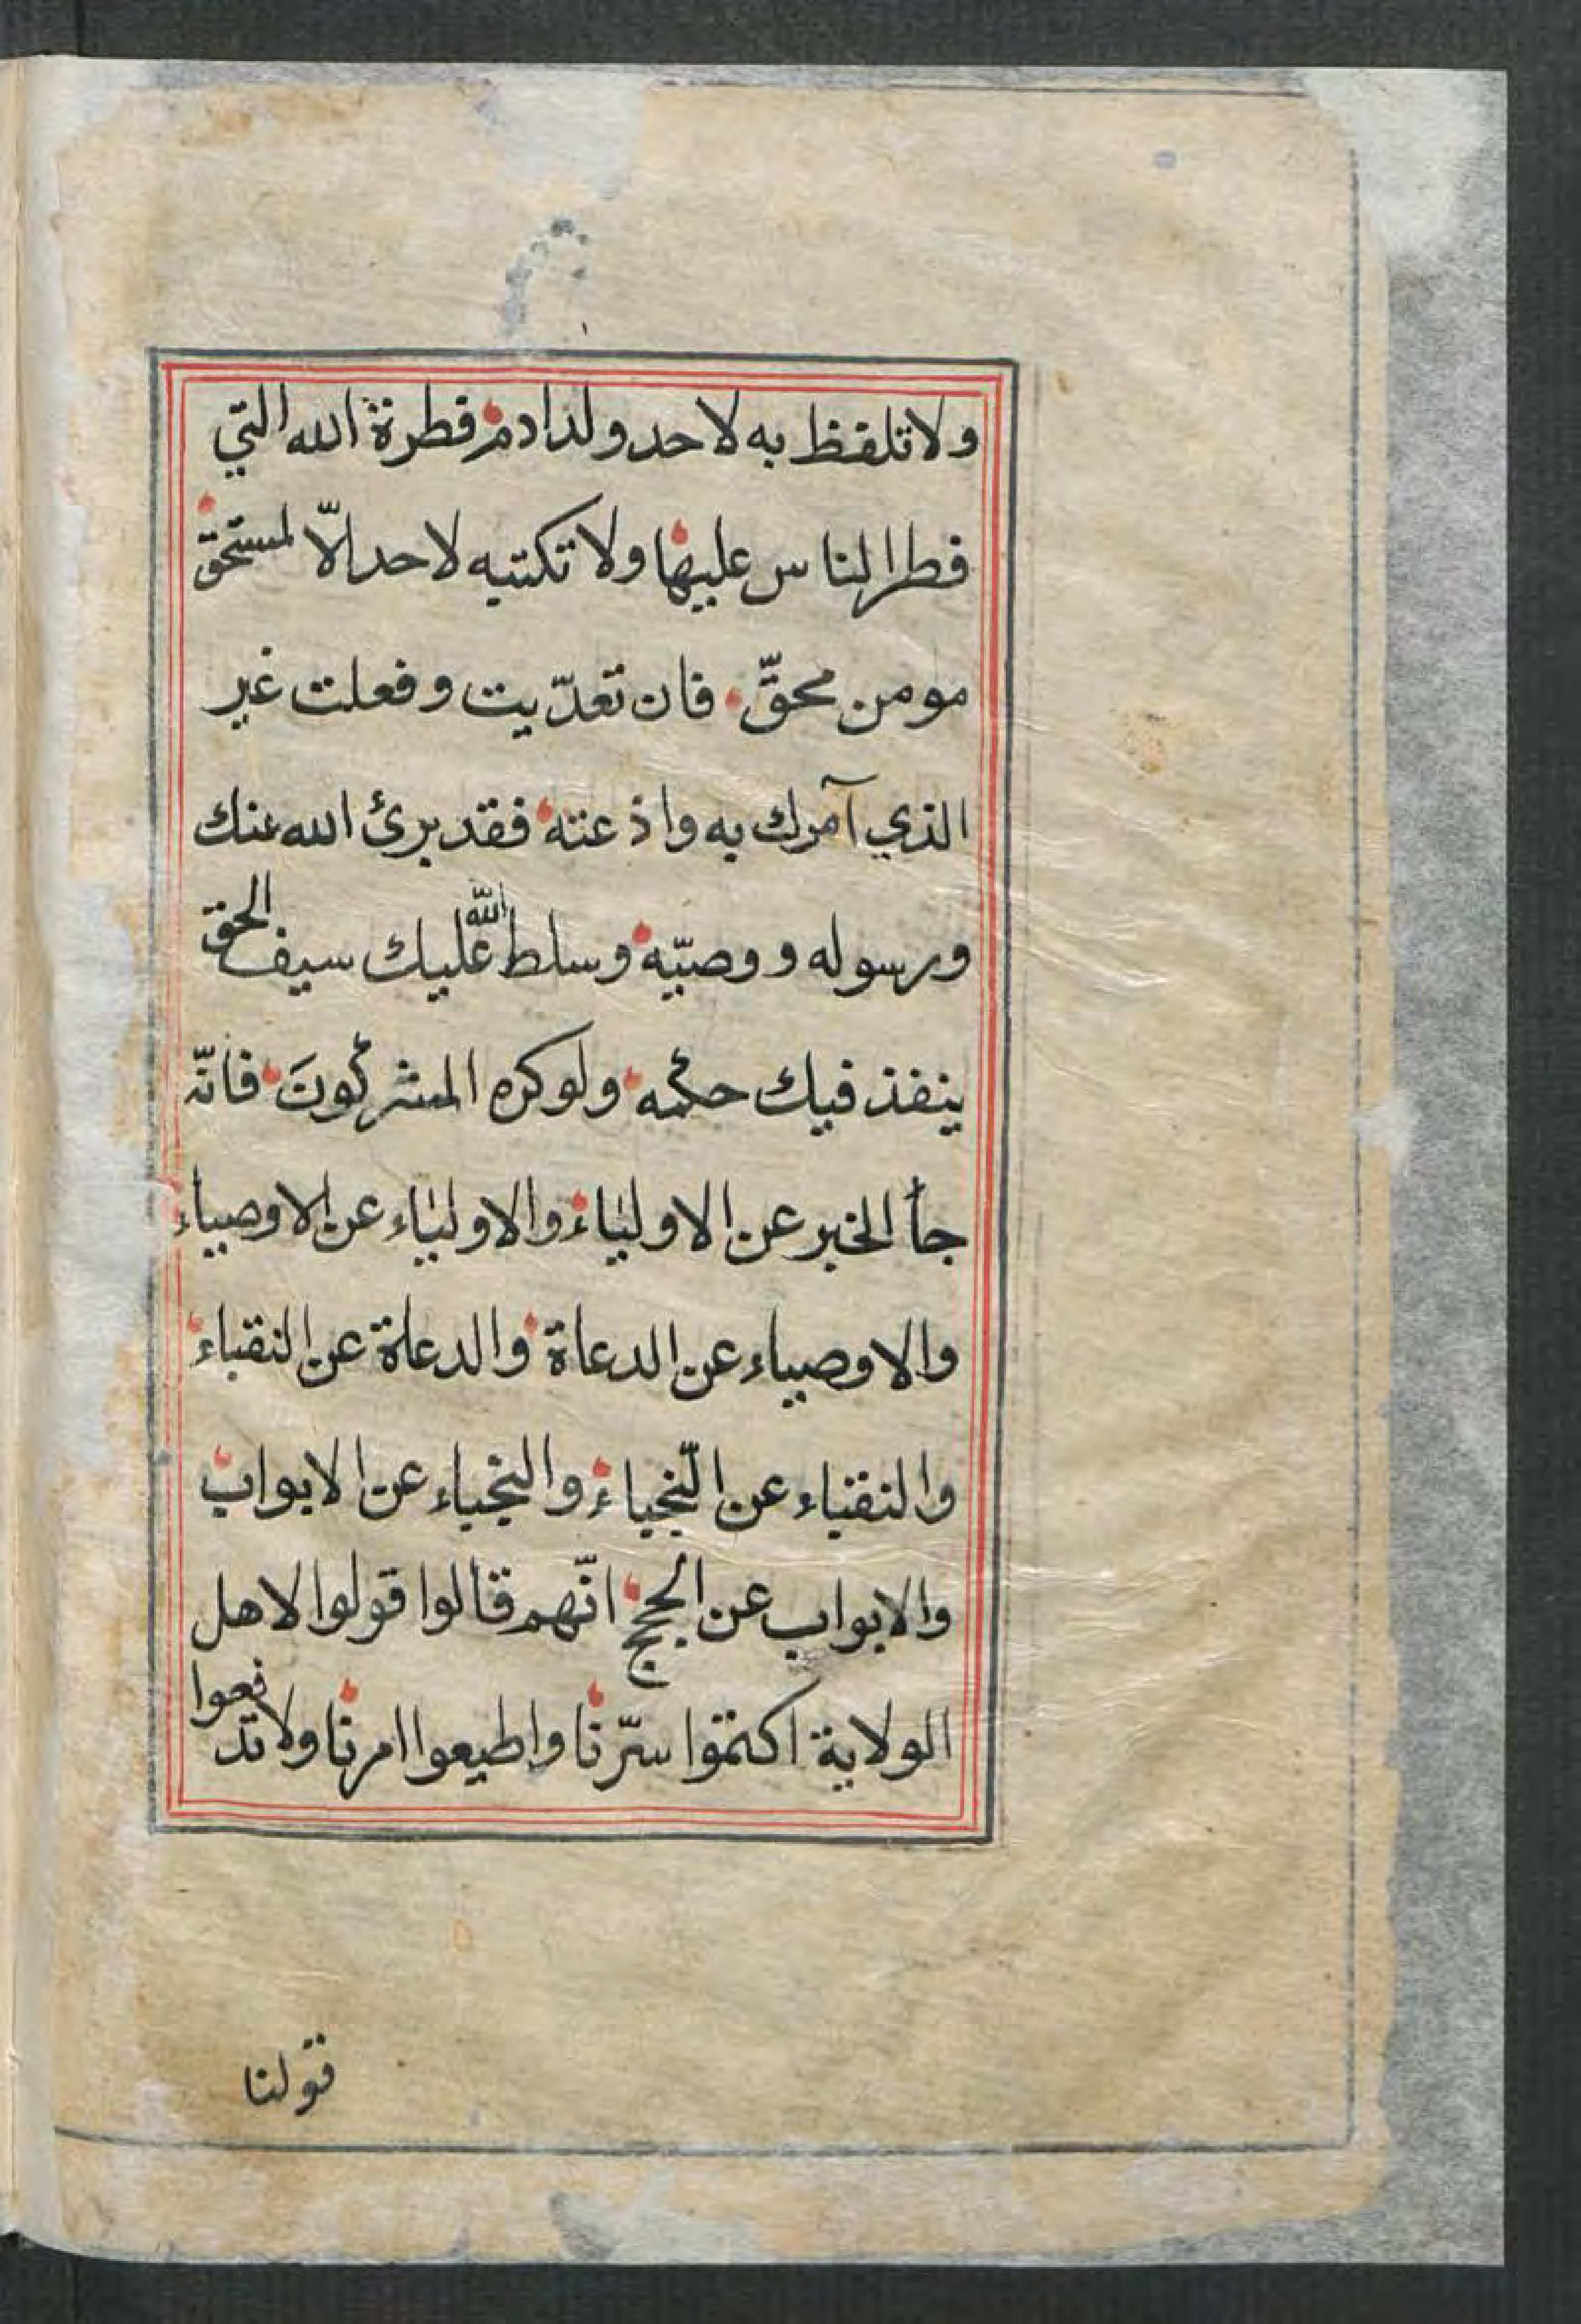 ولا تلفظ به لاحد ولد ادم فطرة الله التي
فطر الناس عليها ولا تكتبه لاحد الّا لمستحق
مومن محقّ فان تعدّيت وفعلت غير
الذي آمرك به واذعته فقد برئ الله عنك
ورسوله ووصيّه وسلط الله عليك سيف الحق
ينفذ فيك حكمه ولو كره المشركونَ فانّه
جأ الخبر عن الاولياء والاولياء عن الاوصياء
والاوصياء عن الدعاة والدعاة عن النقباء
والنقباء عن النّجباء والنجباء عن الابواب
والابواب عن الحجج انّهم قالوا قولوا لاهل
الولاية اكتموا سرّنا واطيعوا امرنا ولا تدفعوا
قولنا